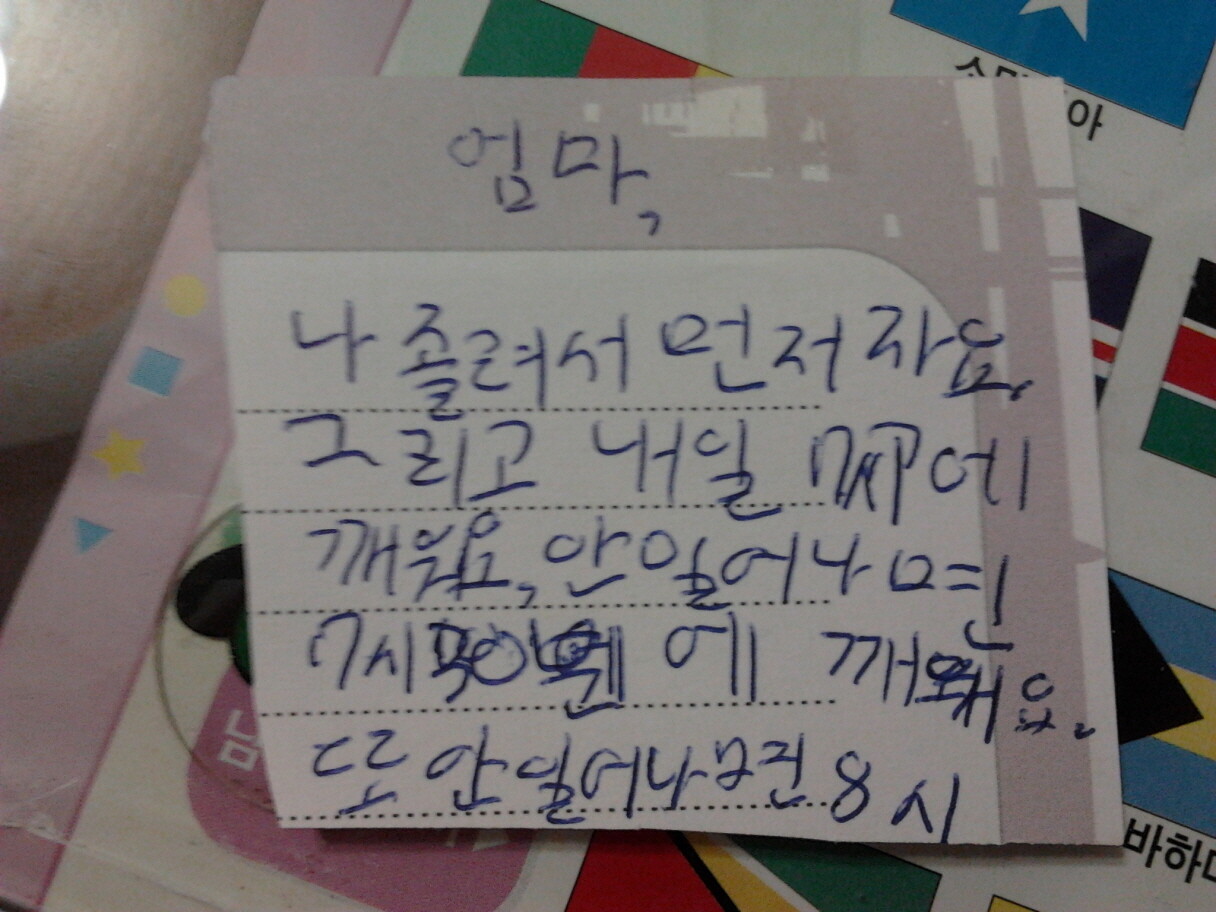 소말리아
엄마,
나 졸려서 먼저 자요.
그리고 내일 7시에
깨워요, 안 일어나면
7시 에 깨워요.
또 안 일어나면 8시
바하마